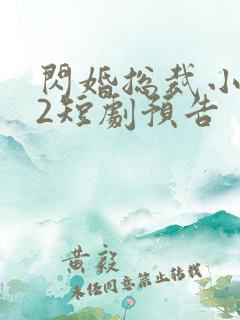 閃婚总裁小
2短劇預告
黄毅
未任同意禁止转载